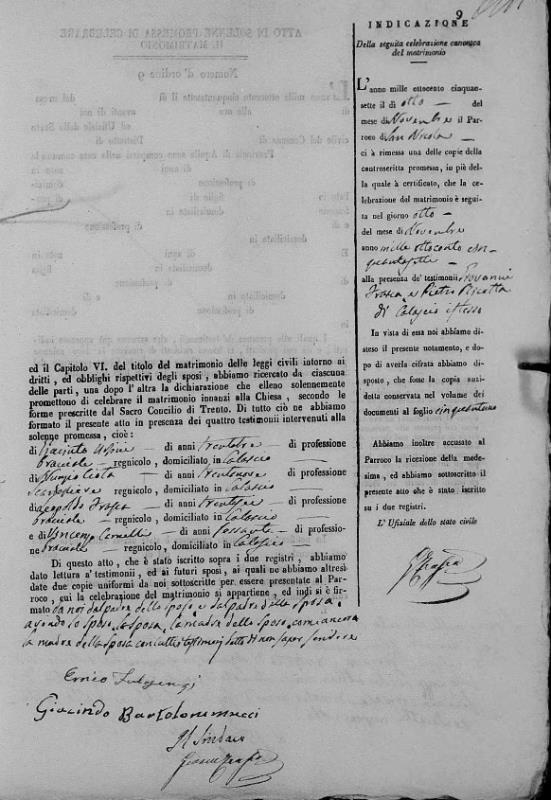 9
INDICAZIONE
Della seguita celebrazione canonica
del matrimonio
L'anno mille ottocento cinquan-
sette il dì otto — del
mese di Novembre il Par-
roco di San Nicola —
ci à rimessa una delle copie della
controscritta promessa, in piè del-
la quale à certificato, che la ce-
lebrazione del matrimonio è segui-
ta nel giorno otto —
del mese di Novembre
anno mille ottocento cin-
quantasette —
alla presenza de' testimonii Giovanni
Frasca e Pietro
di Calascio
In vista di essa noi abbiamo di-
steso il presente notamento, e do-
po di averla cifrata abbiamo di-
sposto, che fosse la copia anzi-
detta conservata nel volume dei
documenti al foglio cinquantuno
Abbiamo inoltre accusato al
Parroco la ricezione della mede-
sima, ed abbiamo sottoscritto il
presente atto che è stato iscritto
su i due registri.
L' Ufiziale dello stato civile
ATTO IN SOLENNE PROMESSA DI CELEBRARE
IL MATRIMONIO
Numero d'ordine 9
ed il Capitolo VI. del titolo del matrimonio delle leggi civili intorno ai
dritti, ed obblighi rispettivi degli sposi, abbiamo ricercato da ciascuna
delle parti, una dopo l' altra la dichiarazione che elleno solennemente
promettono di celebrare il matrimonio innanzi alla Chiesa, secondo le
forme prescritte dal Sacro Concilio di Trento. Di tutto ciò ne abbiamo
formato il presente atto in presenza dei quattro testimonii intervenuti alla
solenne promessa, cioè:
di Giacinto — di anni trentatre — di professione
bracciale — regnicolo, domiciliato in Calascio —
di — di anni — di professione
regnicolo, domiciliato in Calascio —
di Leopoldo Frasca — di anni — di professione
bracciale — regnicolo, domiciliato in Calascio
e di Vincenzo — di anni sessanta — di professio-
ne bracciale — regnicolo, domiciliato in Calascio —
Di questo atto, che è stato iscritto sopra i due registri, abbiamo
dato lettura a' testimonii, ed ai futuri sposi, ai quali ne abbiamo altresì
date due copie uniformi da noi sottoscritte per essere presentate al Par-
roco, cui la celebrazione del matrimonio si appartiene, ed indi si è fir-
mato da noi dal padre dello sposo e dal padre della sposa,
avendo lo sposo, la sposa, la madre dello sposo, come ancora
la madre della sposa con tutti i testimonj detto di non saper scrivere
Errico Fulgenzj
Giacindo Bartolomeucci
Il Sindaco